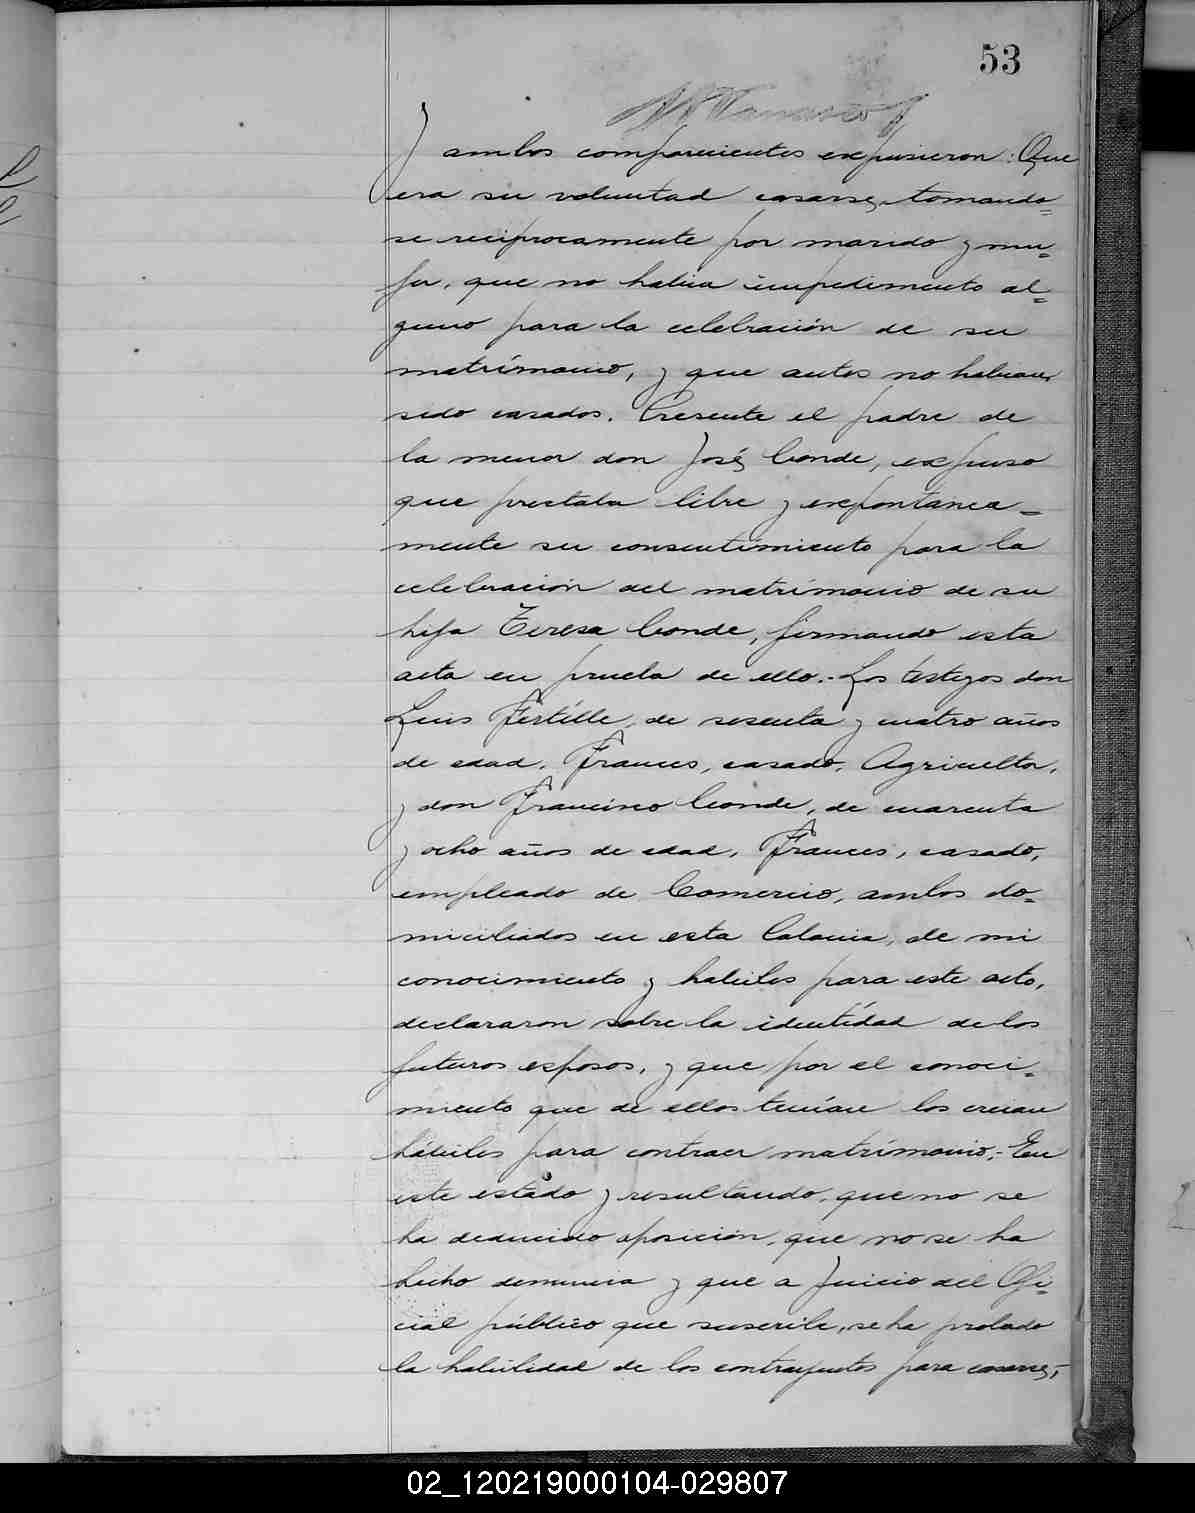 53
y ambos comparecientes expusieron: Que
era su voluntad casarse, tomando=
se reciprocamente por marido y mu=
jer, que no habia impedimento al=
guno para la celebración de su
matrimonio, y que antes no habian
sido casados. Presente el padre de
la menor don José Conde, expuso
que prestaba libre y expontanea=
mente su consentimiento para la
celebración del matrimonio de su
hija Teresa Conde, firmando esta
acta en prueba de ello.- Los testigos don
Luis Fertille, de sesenta y cuatro años
de edad, Frances, casado, Agricultor,
y don Francisco Conde, de cuarenta
y ocho años de edad, Frances, casado,
empleado de Comercio, ambos do=
miciliados en esta Colonia, de mi
conocimiento y habiles para este acto,
declararon sobre la identidad de los
futuros esposos, y que por el conoci=
miento que de ellos tenian los creian
hábiles para contraer matrimonio.- En
este estado y resultando, que no se
ha deducido oposición, que no se ha
hecho denuncia y que a juicio del Ofi=
cial público que suscribe, se ha probado
la habilidad de los contrayentes para casarse,-
02_120219000104-029807